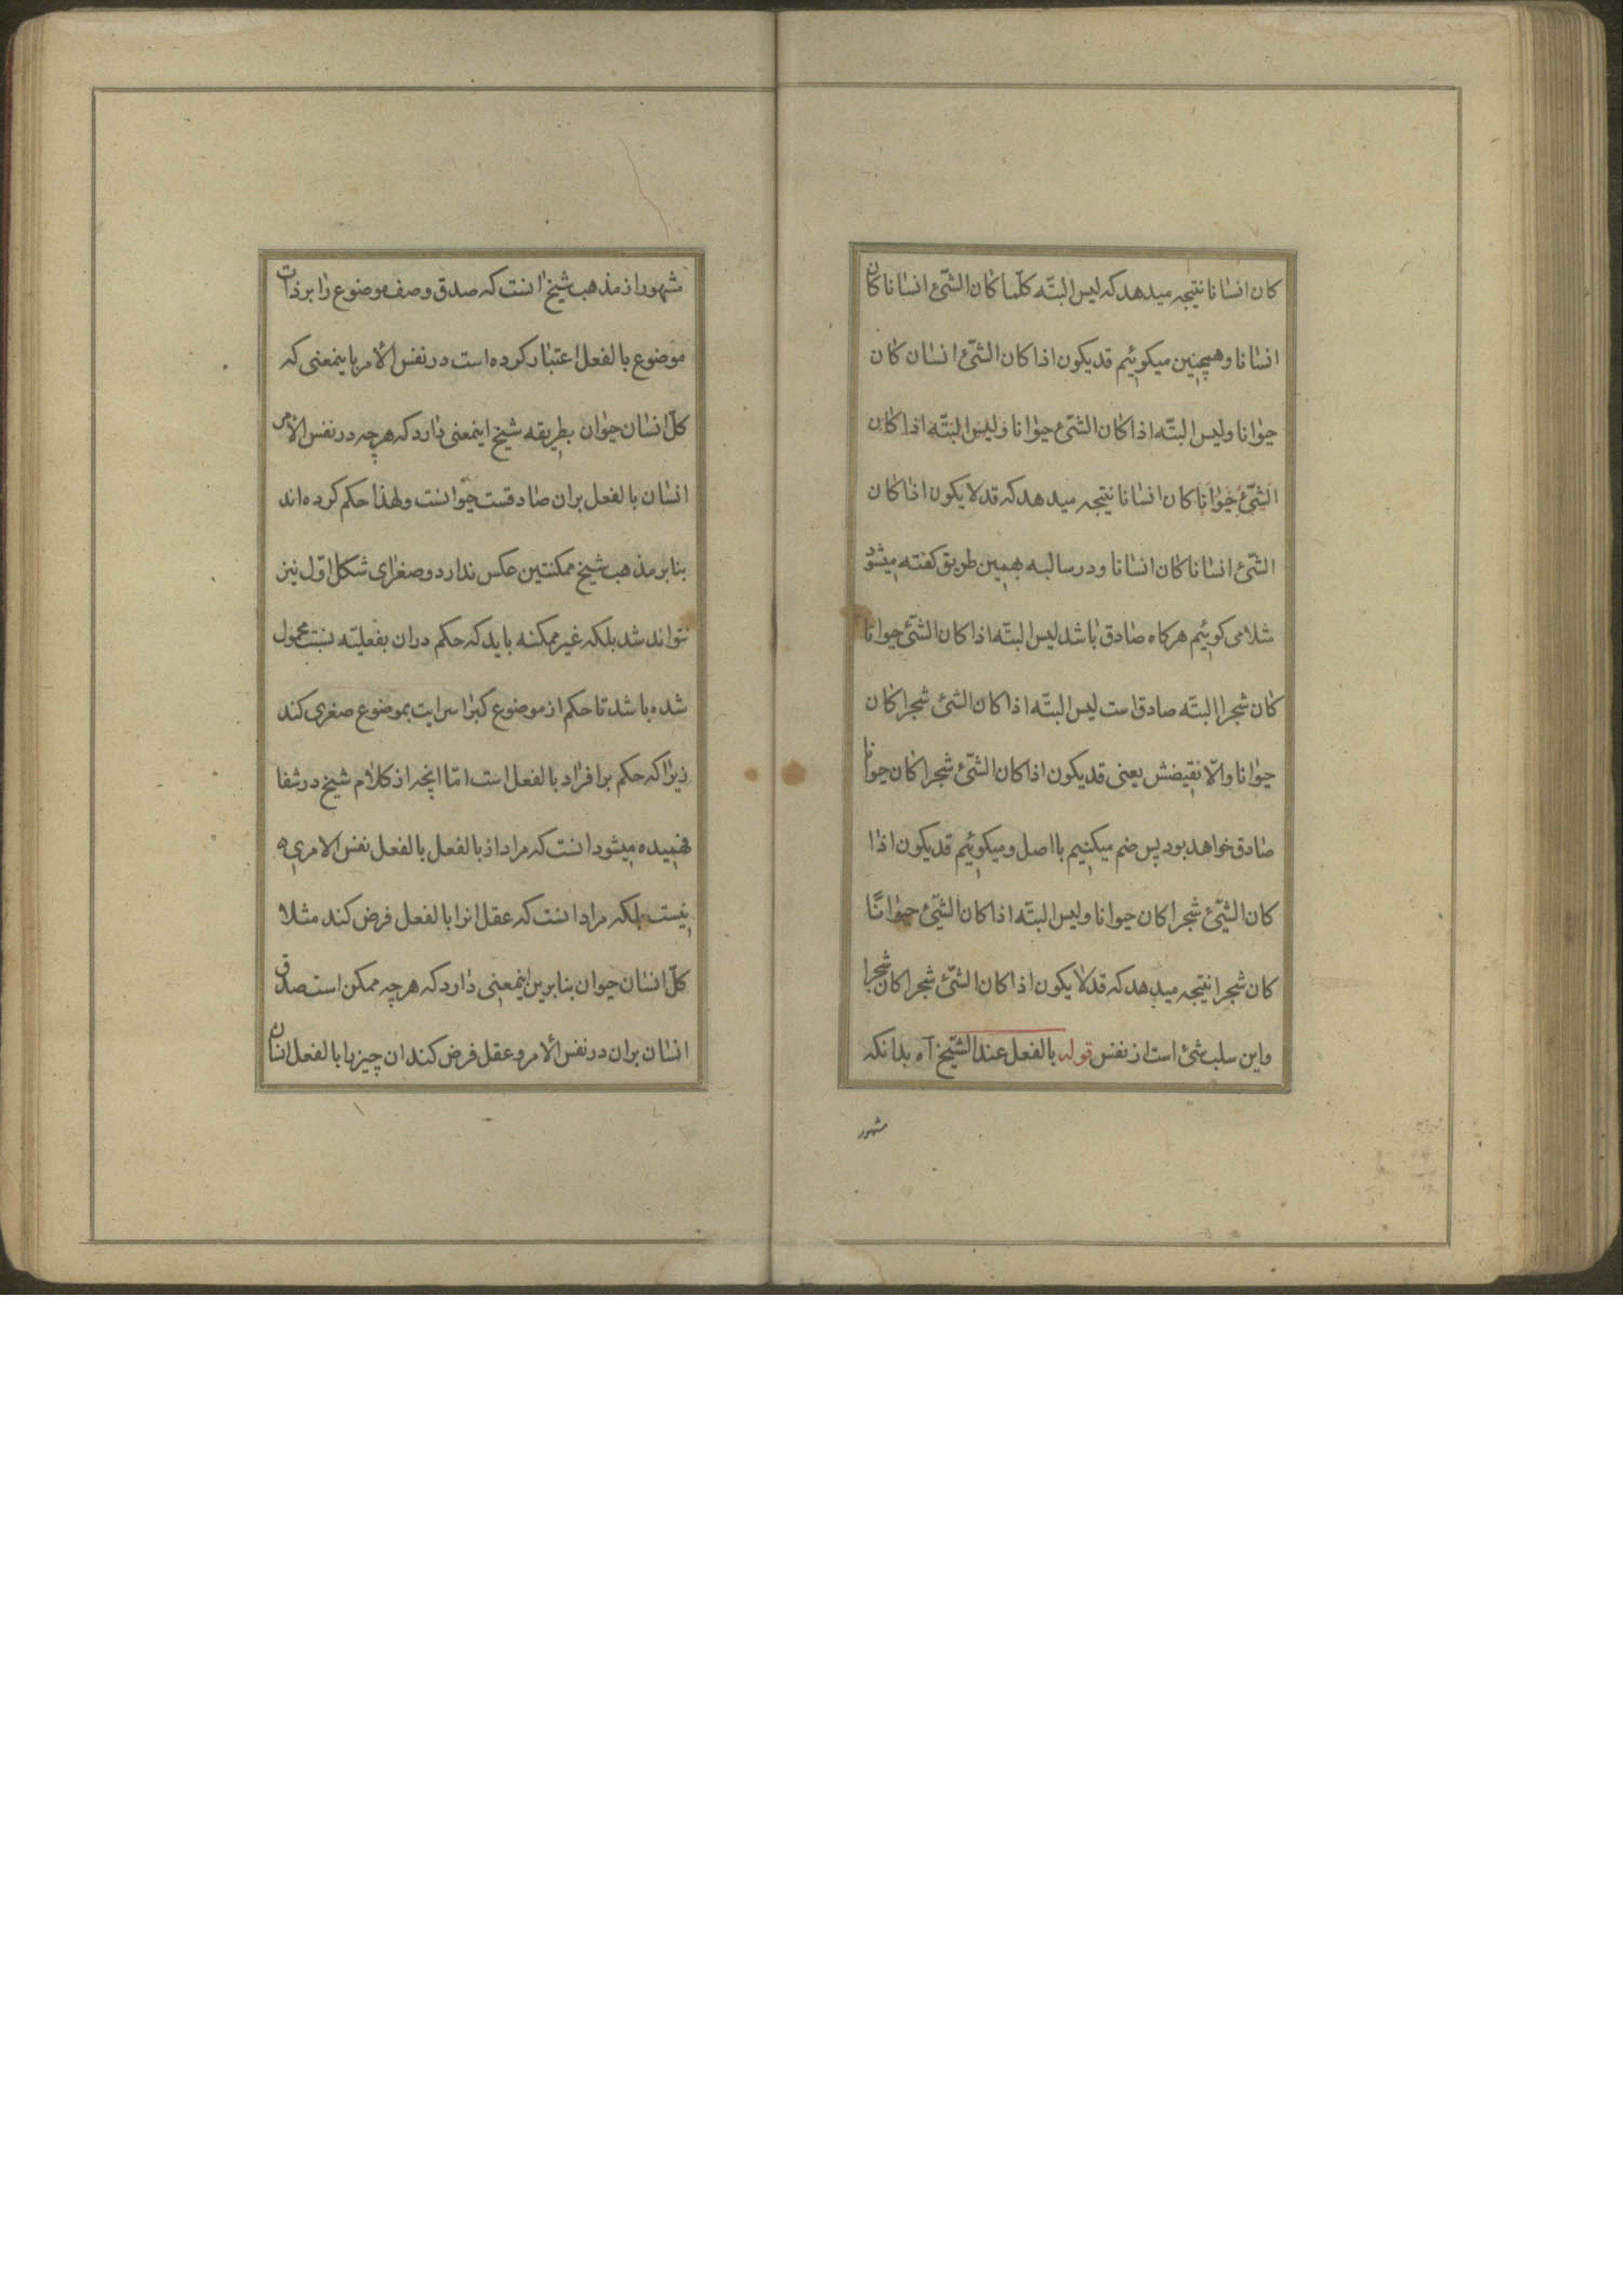 كان انسانا نتیجه میدهد که لیس البتّه کلّما کان الشّیٔ انسانا کان
انسانا و همچنین میکوییٔم قد یکون اذا کان الشّیٔ انسان کان
حیوانا و لیس البتّه اذا کان الشّیٔ حیوانا و لیس البتّه اذا کان
الشّیٔ حیوانا کان انسانا نتیجه میدهد که قد لا یکون اذا کان
الشّیٔ انسانا کان انسانا و در سالبه بهمین طریق کفته میشود
مثلا می کوییٔم هرکاه صادق باشد لیس البتّه اذا کان الشّیٔ حیوانا
کان شجرا البتّه صادق است لیس البتّه اذا کان الشّیٔ شجرا کان
حیوانا و الّا نقیضش یعنی قد یکون اذا کان الشّیٔ شجرا کان حیوانا
صادق خواهد بود پس ضم میکنیم با اصل و میکوییٔم قد یکون اذا
کان الشّیٔ شجرا کان حیوانا و لیس البتّه اذا کان الشّیٔ حیوانًا
کان شجرا نتیجه میدهد که قد لا یکون اذا کان الشّیٔ شجرا کان شجرا
و این سلب شیٔ است از نفس قوله بالفعل عند الشّیخ آه بدانکه
مشهور
مشهور از مذهب شیخ انست که صدق وصف موضوع را بر ذات
موضوع بالفعل اعتبار کرده است در نفس الأمر باینمعنی که
کلّ انسان حیوان بطریقه شیخ اینمعنی دارد که هرچه در نفس الأمر
انسان بالفعل بران صادقست حیوانست و لهذا حکم کرده اند
بنابر مذهب شیخ ممکنتین عکس ندارد و صغرای شکل اوّل نیز
نتواند شد بلکه غیر ممکنه باید که حکم دران بفعلیّته نسبت محمول
شده باشد تا حکم از موضوع کبرا سرایت بموضوع صغری کند
زیرا که حکم بر افراد بالفعل است امّا انچه از کلام شیخ در شفا
فهمیده میشود انست که مراد از بالفعل بالفعل نفس الامری
نیست بلکه مراد انست که عقل انرا بالفعل فرض کند مثلا
کلّ انسان حیوان بنابرین اینمعنی دارد که هرچه ممکن است صدق
انسان بران در نفس الأمر و عقل فرض کند ان چیز را بالفعل انسان